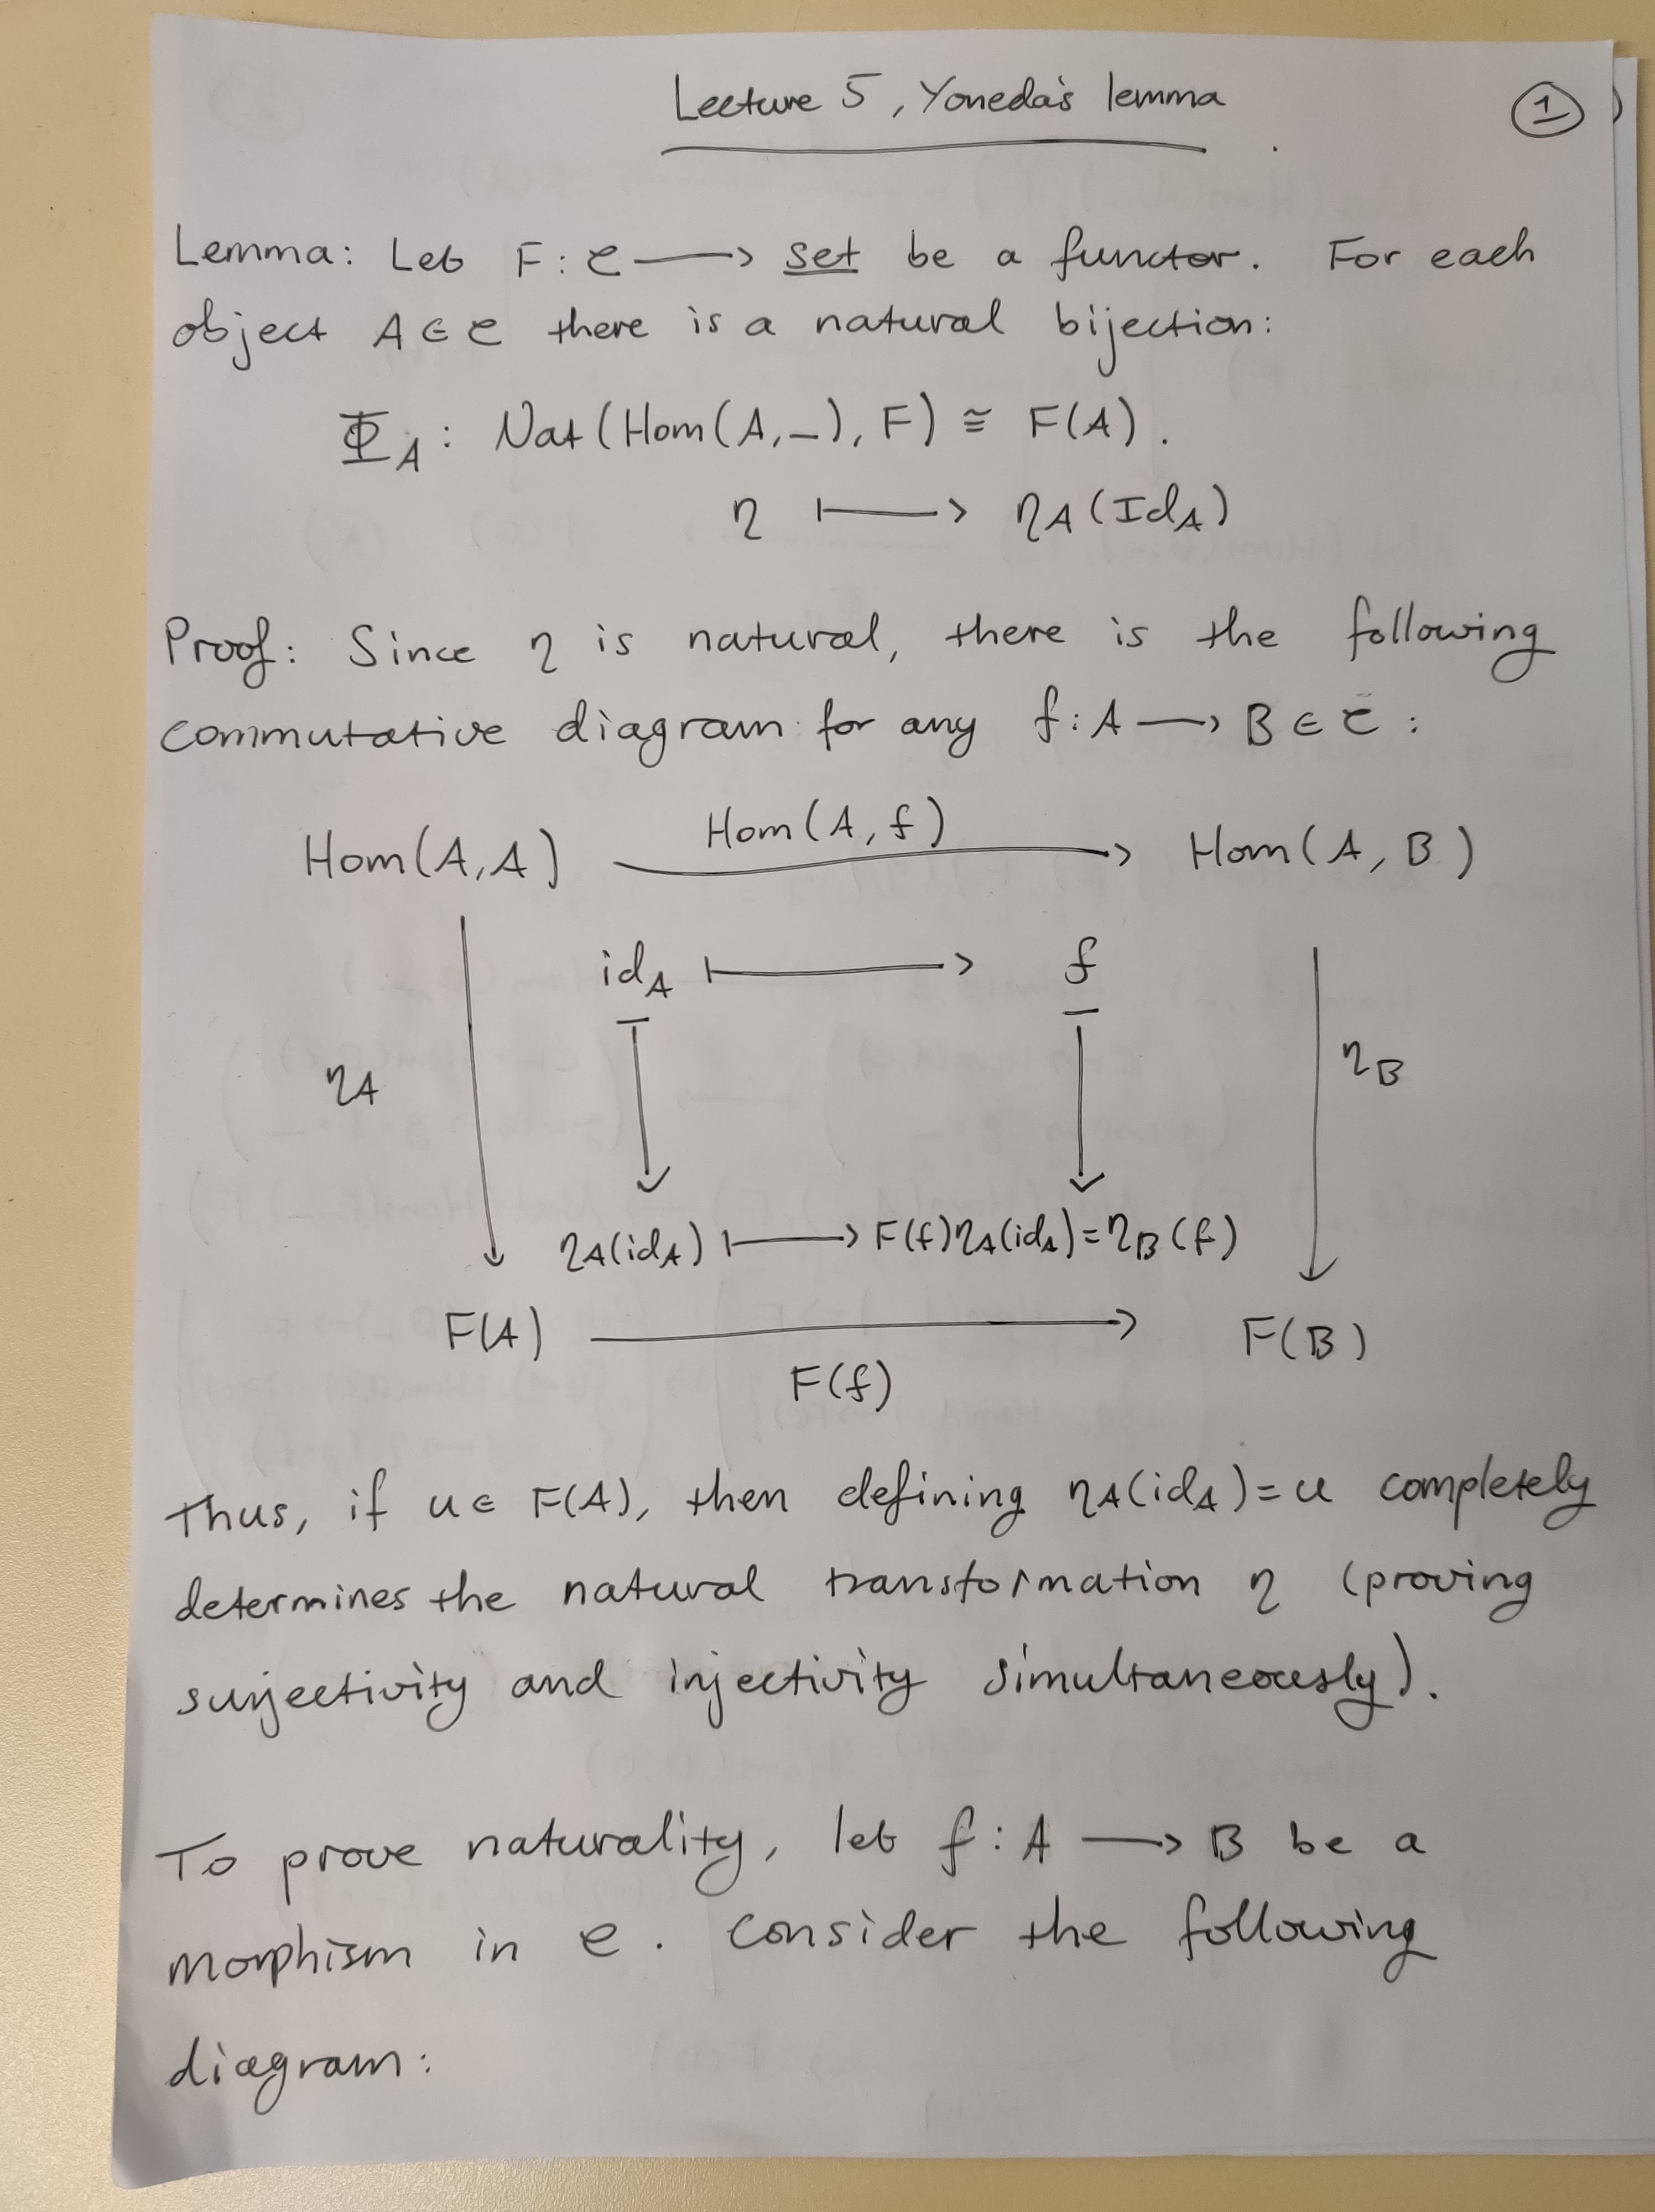 Lecture 5, Yoneda's lemma
①
Lemma: Let F: 𝒞 ⟶ set be a functor. For each
object A ∈ 𝒞 there is a natural bijection:
Φ_A : Nat(Hom(A,_), F) ≅ F(A).
η ⟼ η_A(Id_A)
Proof: Since η is natural, there is the following
commutative diagram for any f: A ⟶ B ∈ 𝒞 :
Hom(A,A) Hom(A,f) ⟶ Hom(A,B)
id_A ⟼ f
η_A η_B
η_A(id_A) ⟼ F(f)η_A(id_A)=η_B(f)
F(A) ⟶ F(B)
F(f)
Thus, if u ∈ F(A), then defining η_A(id_A)=u completely
determines the natural transformation η (proving
surjectivity and injectivity simultaneously).
To prove naturality, let f: A ⟶ B be a
morphism in 𝒞. Consider the following
diagram: